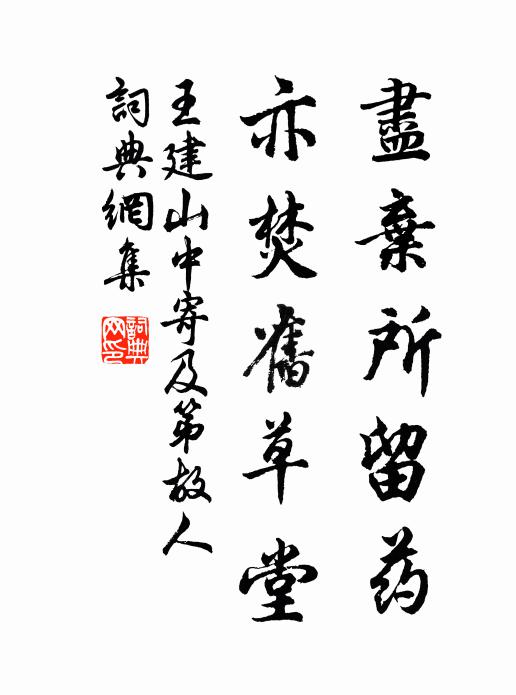 盡棄所留药
亦焚舊草堂
王建山中寄及第故人
詞典網集
詞典网印